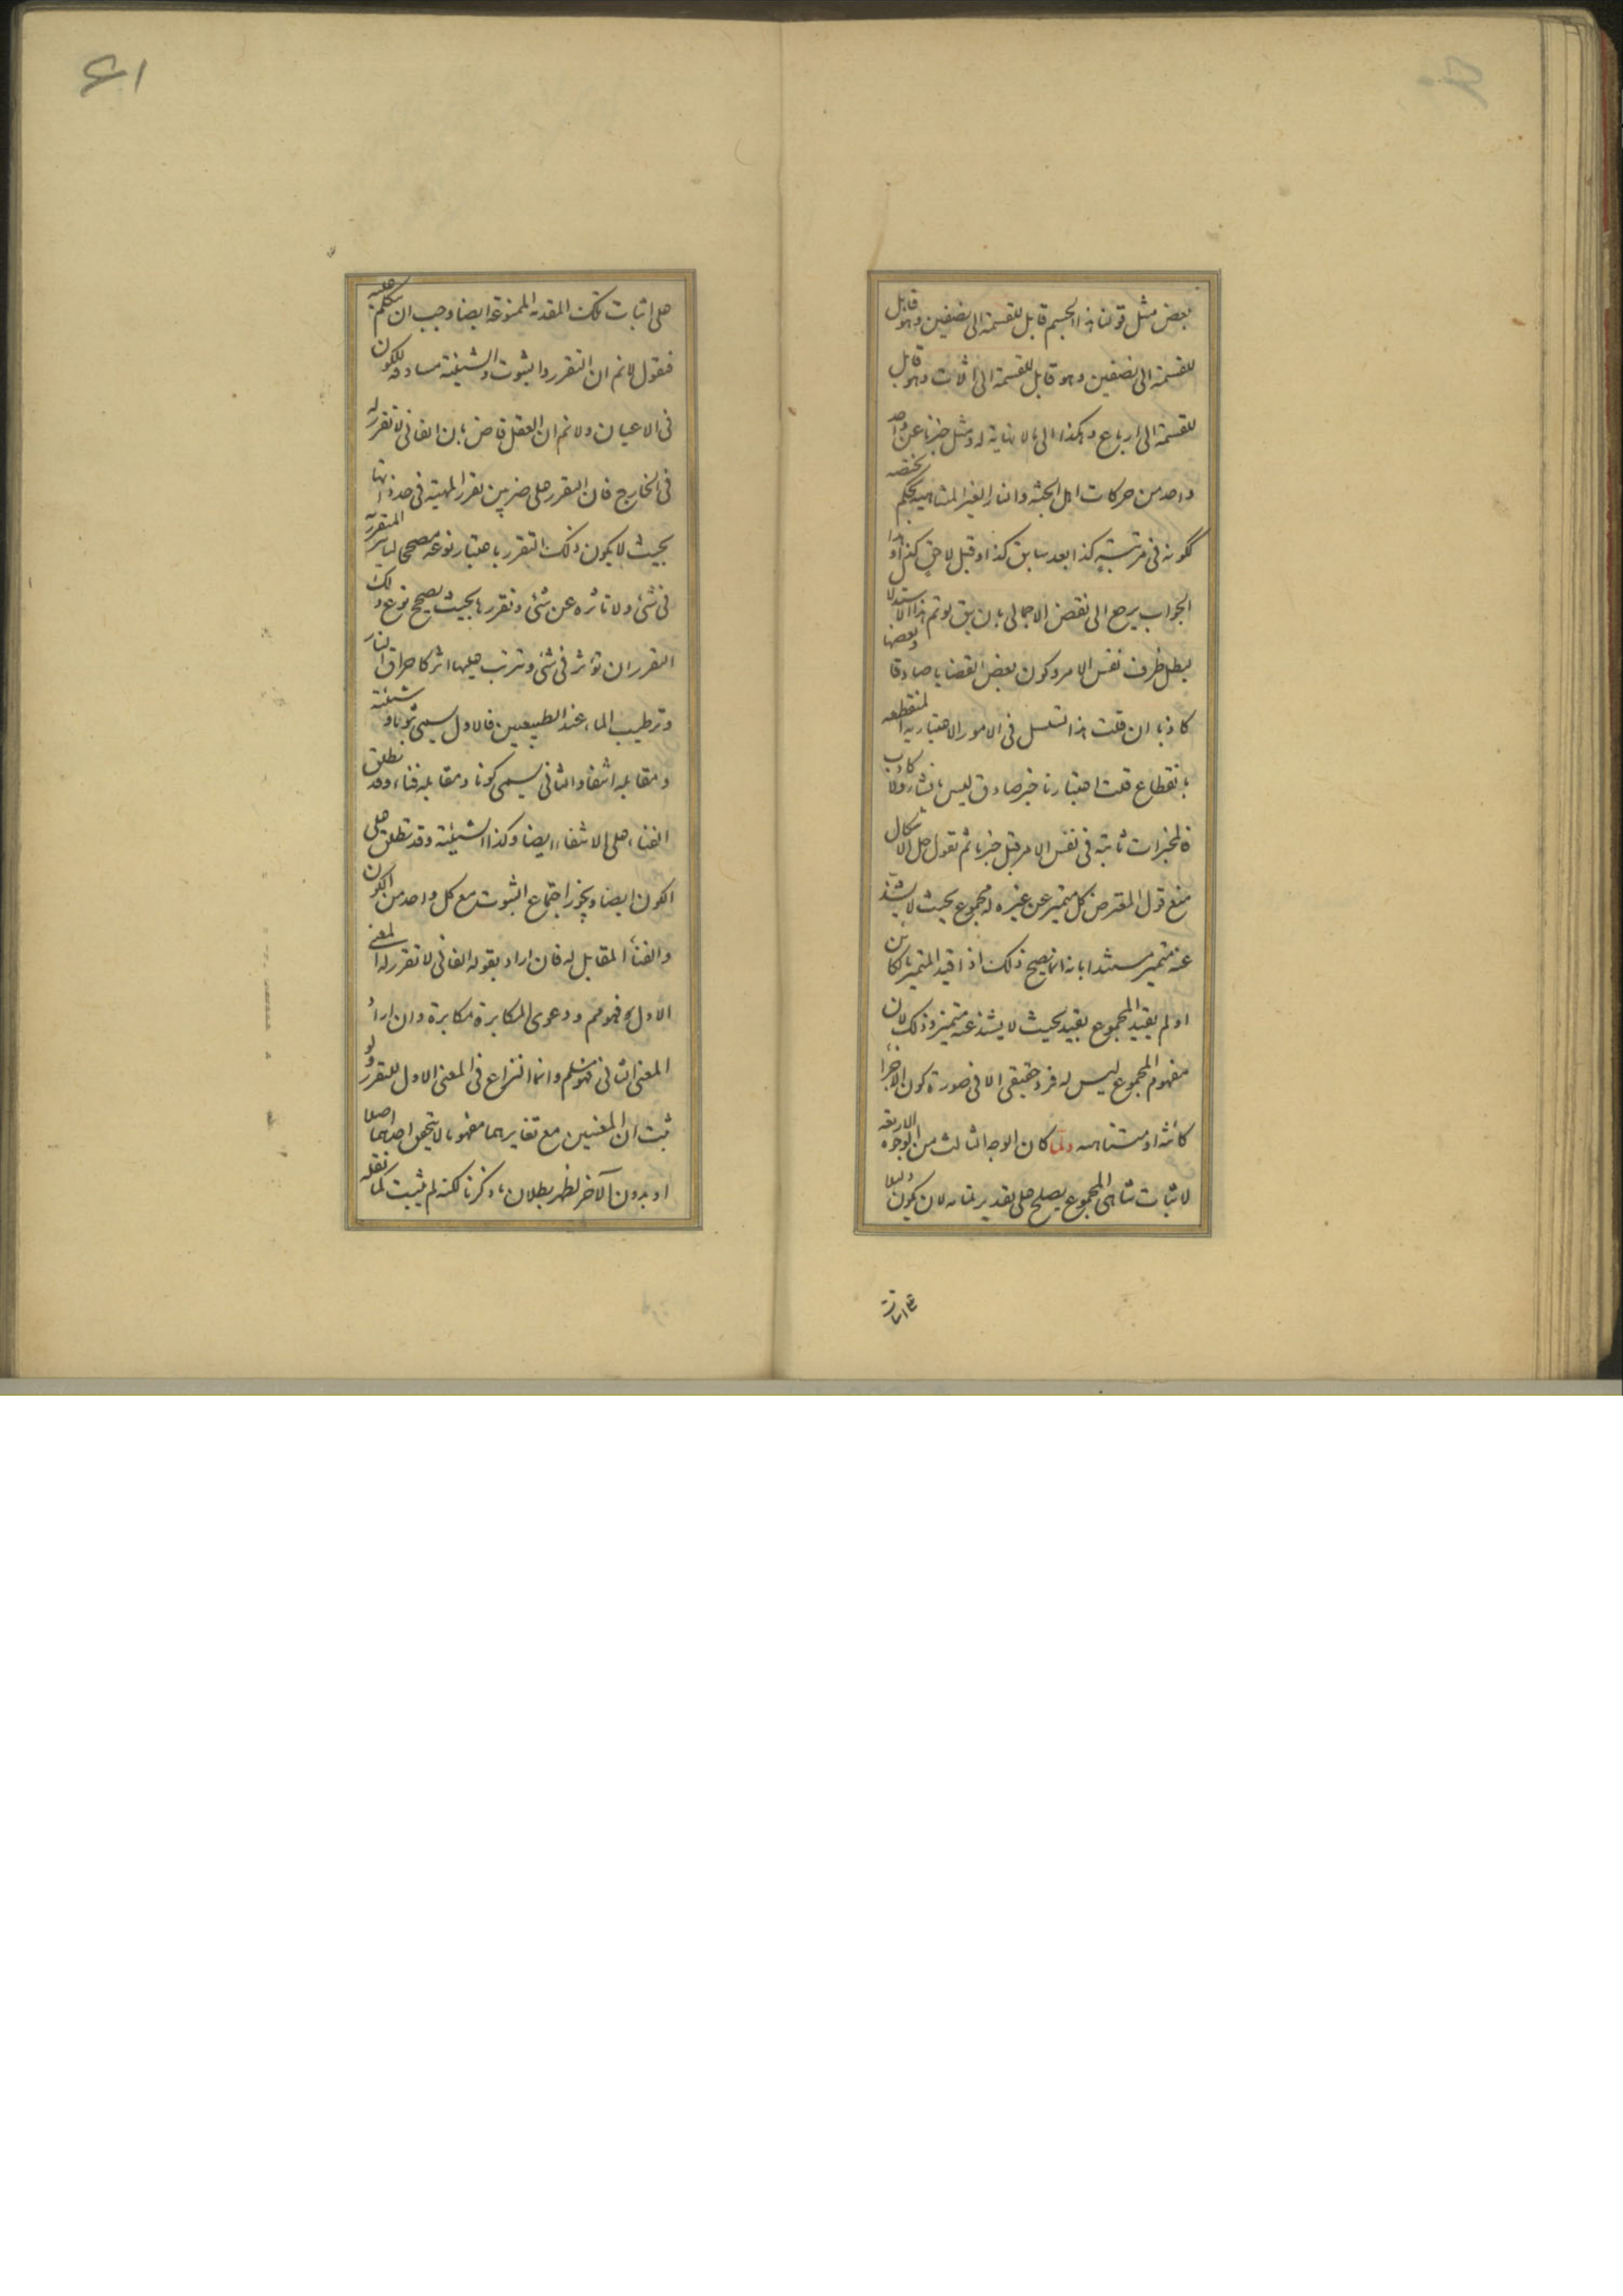 بعض مثل قولنا هذا الجسم قابل للقسمة الى نصفين وهو قابل
للقسمة الى نصفين وهو قابل للقسمة الى اثلاث وهو قابل
للقسمة الى ارباع وهكذا الى ما لا نهاية له ومثل خبرنا عن واحد
واحد من حركات اهل الجنة والنار الغير المتناهية بحكم يختصه
ككونه فى مرتبة كذا بعد سابق كذا او قبل لاحق كذا وهذا
الجواب يرجع الى نقض الاجمالى بان يق لو تم هذا الاستدلال
لبطل ظرف نفس الامر وكون بعض القضايا صادقا وبعضها
كاذبا ان قلت هذا تسلسل فى الامور الاعتبارية المنقطعة
بانقطاع قلت اعتبارنا خبر صادق ليس بانشاء ولا كاذب
فالمخبرات ثابتة فى نفس الامر قبل خبرنا ثم نقول حل الاشكال
منع قول المقترض كل متميز عن غيره له مجموع بحيث لا يشذ
عنه متميز مستندا بانه انما يصح ذلك اذا قيد المتميز بالكائن
او لم يقيد المجموع بقيد بحيث لا يشذ عنه متميز وذلك لان
مفهوم المجموع ليس له فرد حقيقى الا فى صورة كون الاجزاء
كائنة او متناهية ولما كان الوجه الثالث من الوجوه الاربعة
لاثبات تناهى المجموع يصلح على تقدير تمامه لان يكون دليلا
على اثبات
على اثبات تلك المقدمة الممنوعة ايضا وجب ان نتكلم عليه
فنقول لا نم ان التقرر والثبوت والشيئية مساوقة للكون
فى الاعيان ولا نم ان العقل قاض بان الفانى لا تقرر له
فى الخارج فان التقرر على ضربين تقرر المهية فى حد ذاتها
بحيث لا يكون ذلك التقرر باعتبار نوعه مصححا لتاثير المتقرر
فى شئ ولا تاثره عن شئ وتقررها بحيث يصحح نوع ذلك
التقرر ان تؤثر فى شئ وترتب عليها اثر كاحراق النار
وترطيب الماء عند الطبيعيين فالاول يسمى ثبوتا وشيئية
ومقابله انتفاء والثانى يسمى كونا ومقابله فناء وقد نطلق
الفناء على الانتفاء ايضا وكذا الشيئية وقد تطلق على
الكون ايضا ويجوز اجتماع الثبوت مع كل واحد من الكون
والفناء المقابل له فان اراد بقوله الفانى لا تقرر له المعنى
الاول فهو مم ودعوى المكابرة مكابرة وان اراد
المعنى الثانى فهو مسلم وانما النزاع فى المعنى الاول للتقرر ولو
ثبت ان المعنيين مع تغايرهما مفهوما لا يتحقق احدهما اصلا
او بدون الآخر لظهر بطلان ما ذكرنا لكنه لم يثبت كما نقله